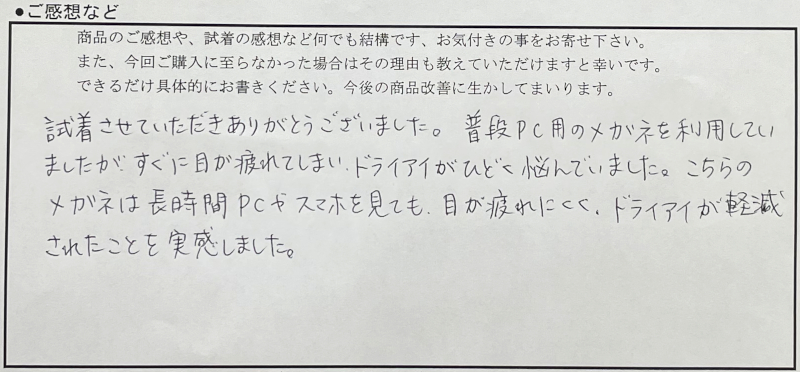 ●ご感想など
商品のご感想や、試着の感想など何でも結構です、お気付きの事をお寄せ下さい。
また、今回ご購入に至らなかった場合はその理由も教えていただけますと幸いです。
できるだけ具体的にお書きください。今後の商品改善に生かしてまいります。
試着させていただきありがとうございました。普段PC用のメガネを利用してい
ましたが、すぐに目が疲れてしまい、ドライアイがひどく悩んでいました。こちらの
メガネは長時間PCやスマホを見ても、目が疲れにくく、ドライアイが軽減
されたことを実感しました。